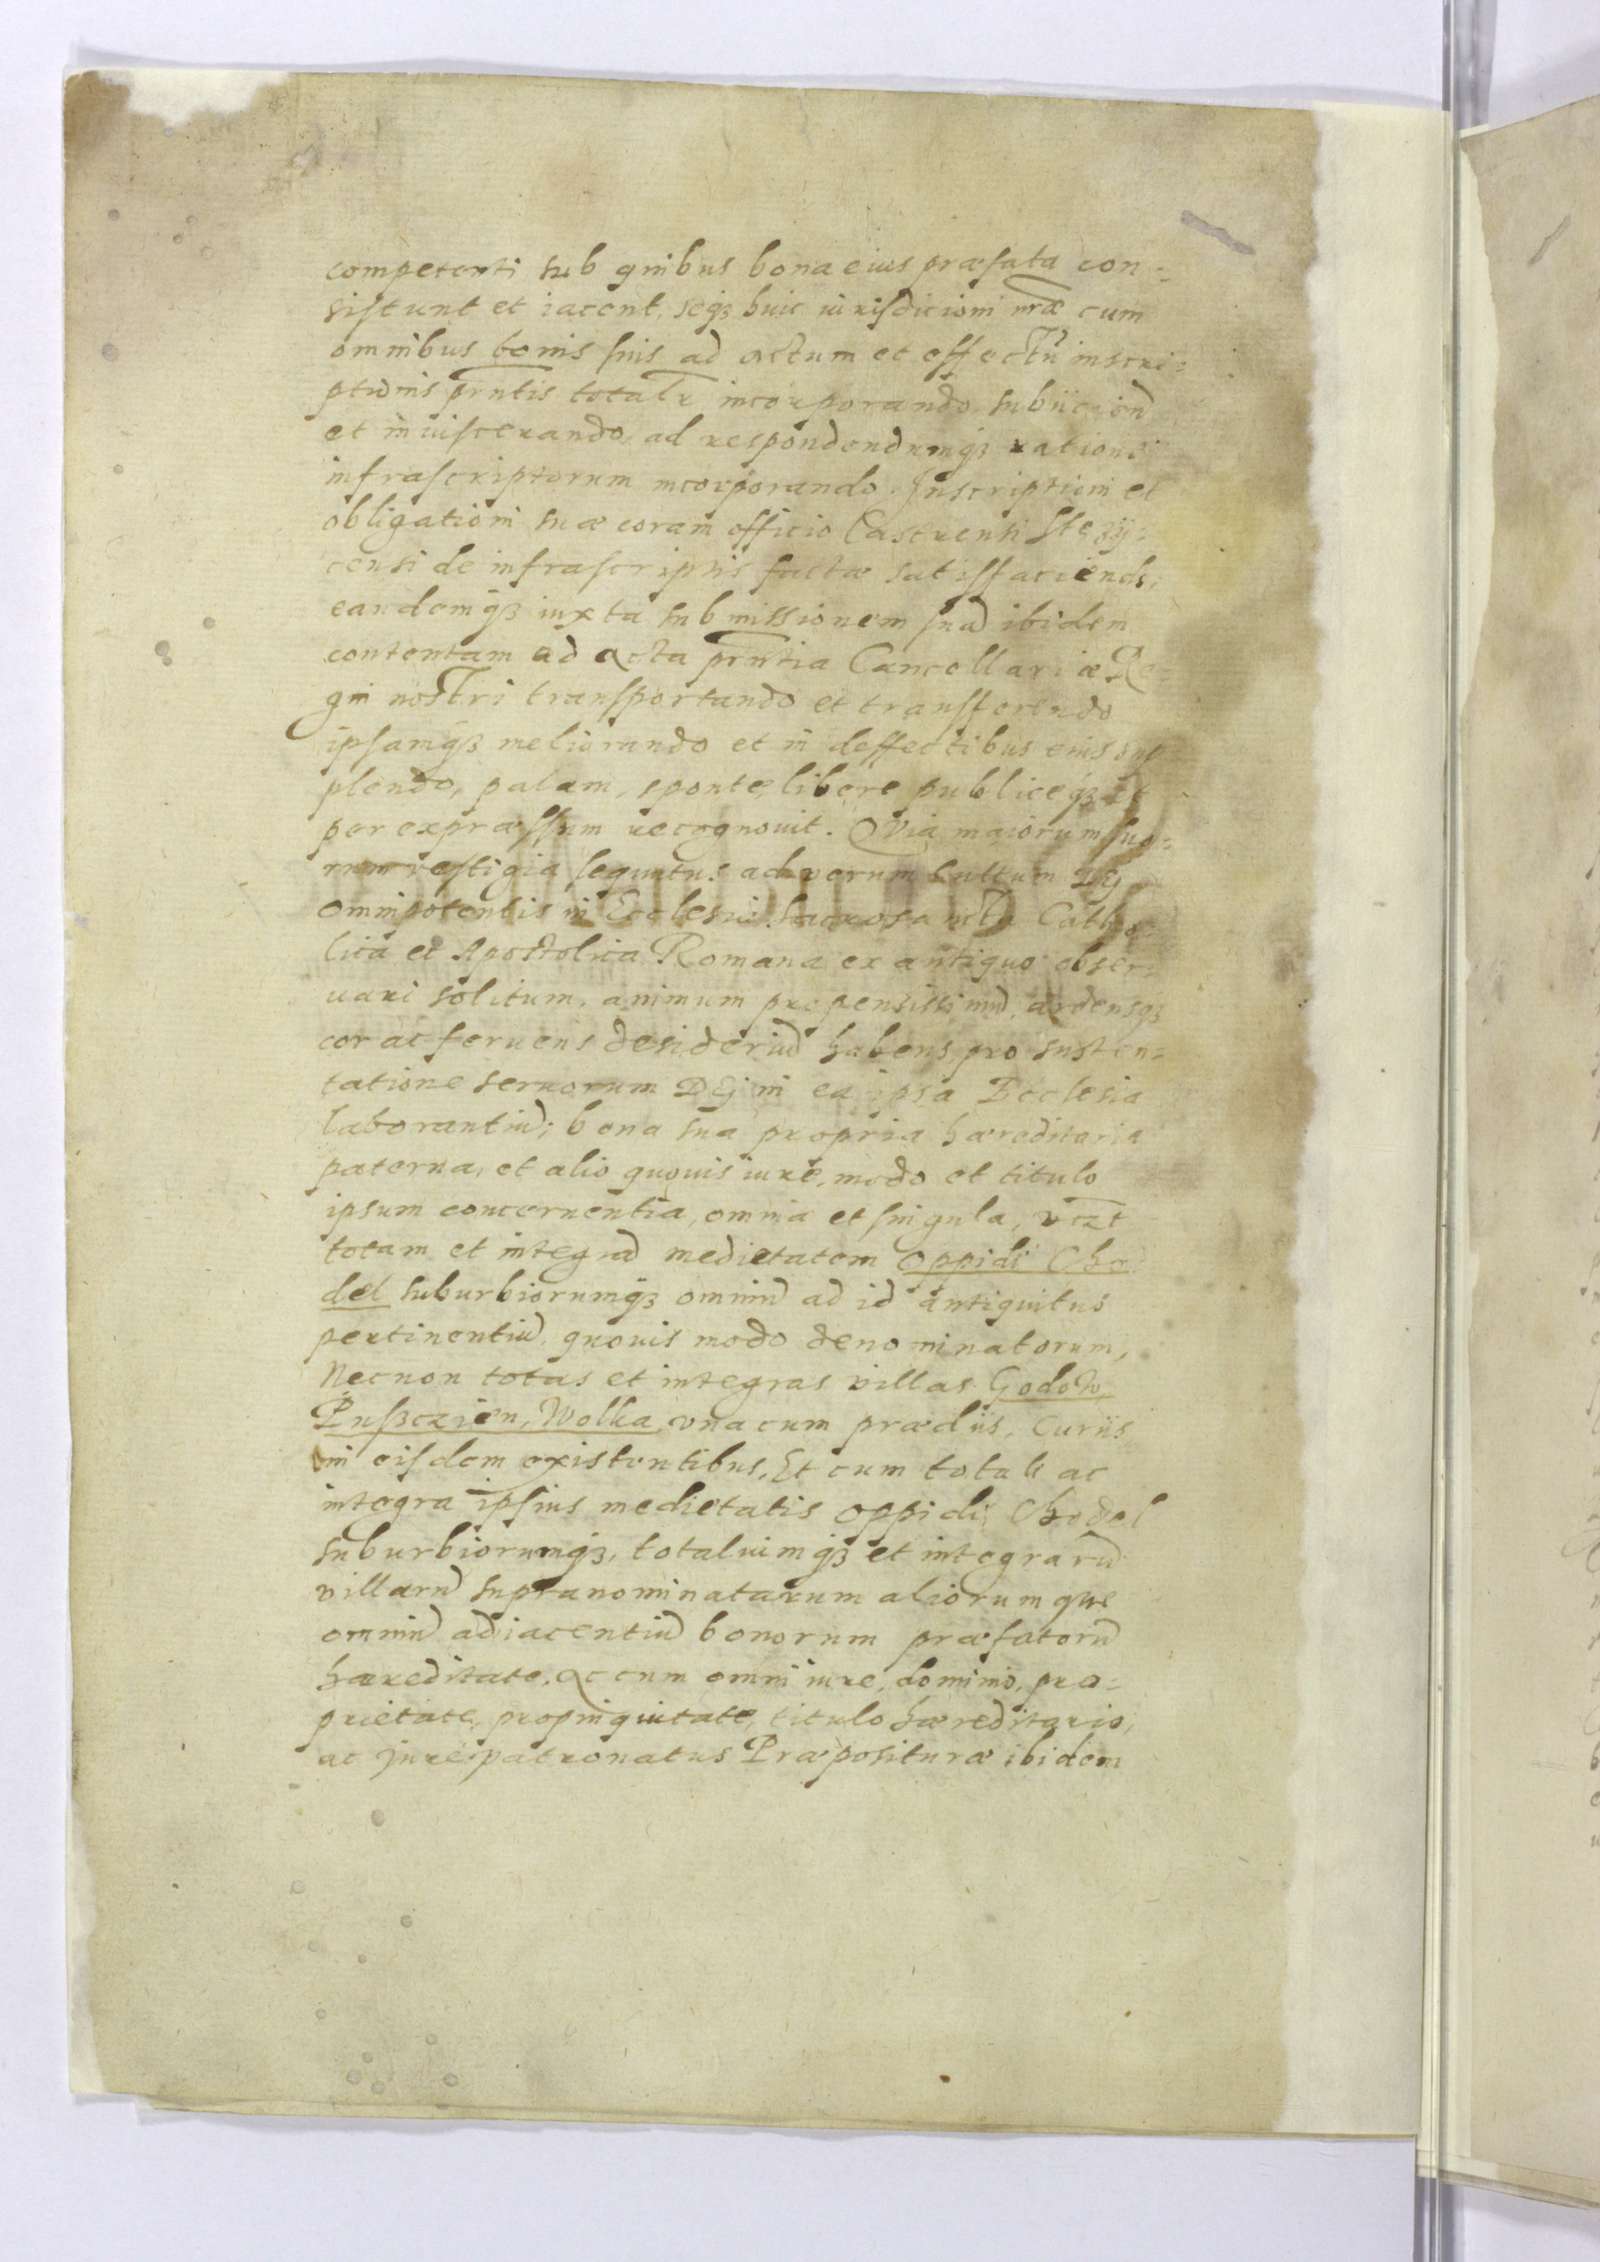 competenti sub quibus bona eius præfata con-
sistunt et iacent, seqz huic iurisdicioni nr̃æ cum
omnibus bonis suis ad actum et effectũ inscri-
ptionis pr̃ntis totalr̃ incorporando subiiciend
et inuiscerando ad respondendumqz ratione
infrascriptorum incorporando. Inscriptioni et
obligationi suæ coram officio Castrensi Stezij-
censi de infrascriptis factæ satisfaciendo,
eandemqz iuxta submissionem suã ibidem
contentam ad acta pr̃ntia Cancellariæ Re-
gni nostri transportando et transferendo
ipsamqz meliorando et in deffectibus eius sup
plendo, palam, sponte, libere publiceqz et
per expræssum recognouit. Quia maiorum suo-
rum vestigia sequutus ad verum Cultum DEj
omnipotentis in Ecclesia Sacrosancta Catho-
lica et Apostolica Romana ex antiquo obser-
uari solitum, animum propensissimũ, ardensqz
cor ac feruens desideriũ habens pro susten-
tatione seruorum DEj in ea ipsa Ecclesia
laborantiũ; bona sua propria hæreditaria
paterna, et alio quouis iure, modo et titulo
ipsum concernentia, omnia et singula, vczt
totam et integrã medietatem oppidi Cho
del suburbiorumqz omniũ ad id antiquitus
pertinentiũ quouis modo denominatorum,
Necnon totas et integras villas Godow,
Pusßczien, Wolka vna cum prædiis, Curiis
in eisdem existentibus, Et cum totali ac
integra ipsius medietatis oppidi Chodel
suburbiorumqz, totaliumqz et integrarũ
villarũ supranominatarum aliorumque
omniũ adiacentiũ bonorum præfatorũ
hæreditate, ac cum omni iure, dominio, pro-
prietate, propinquitate, titulo hæreditario,
ac Jurepatronatus Præposituræ ibidem